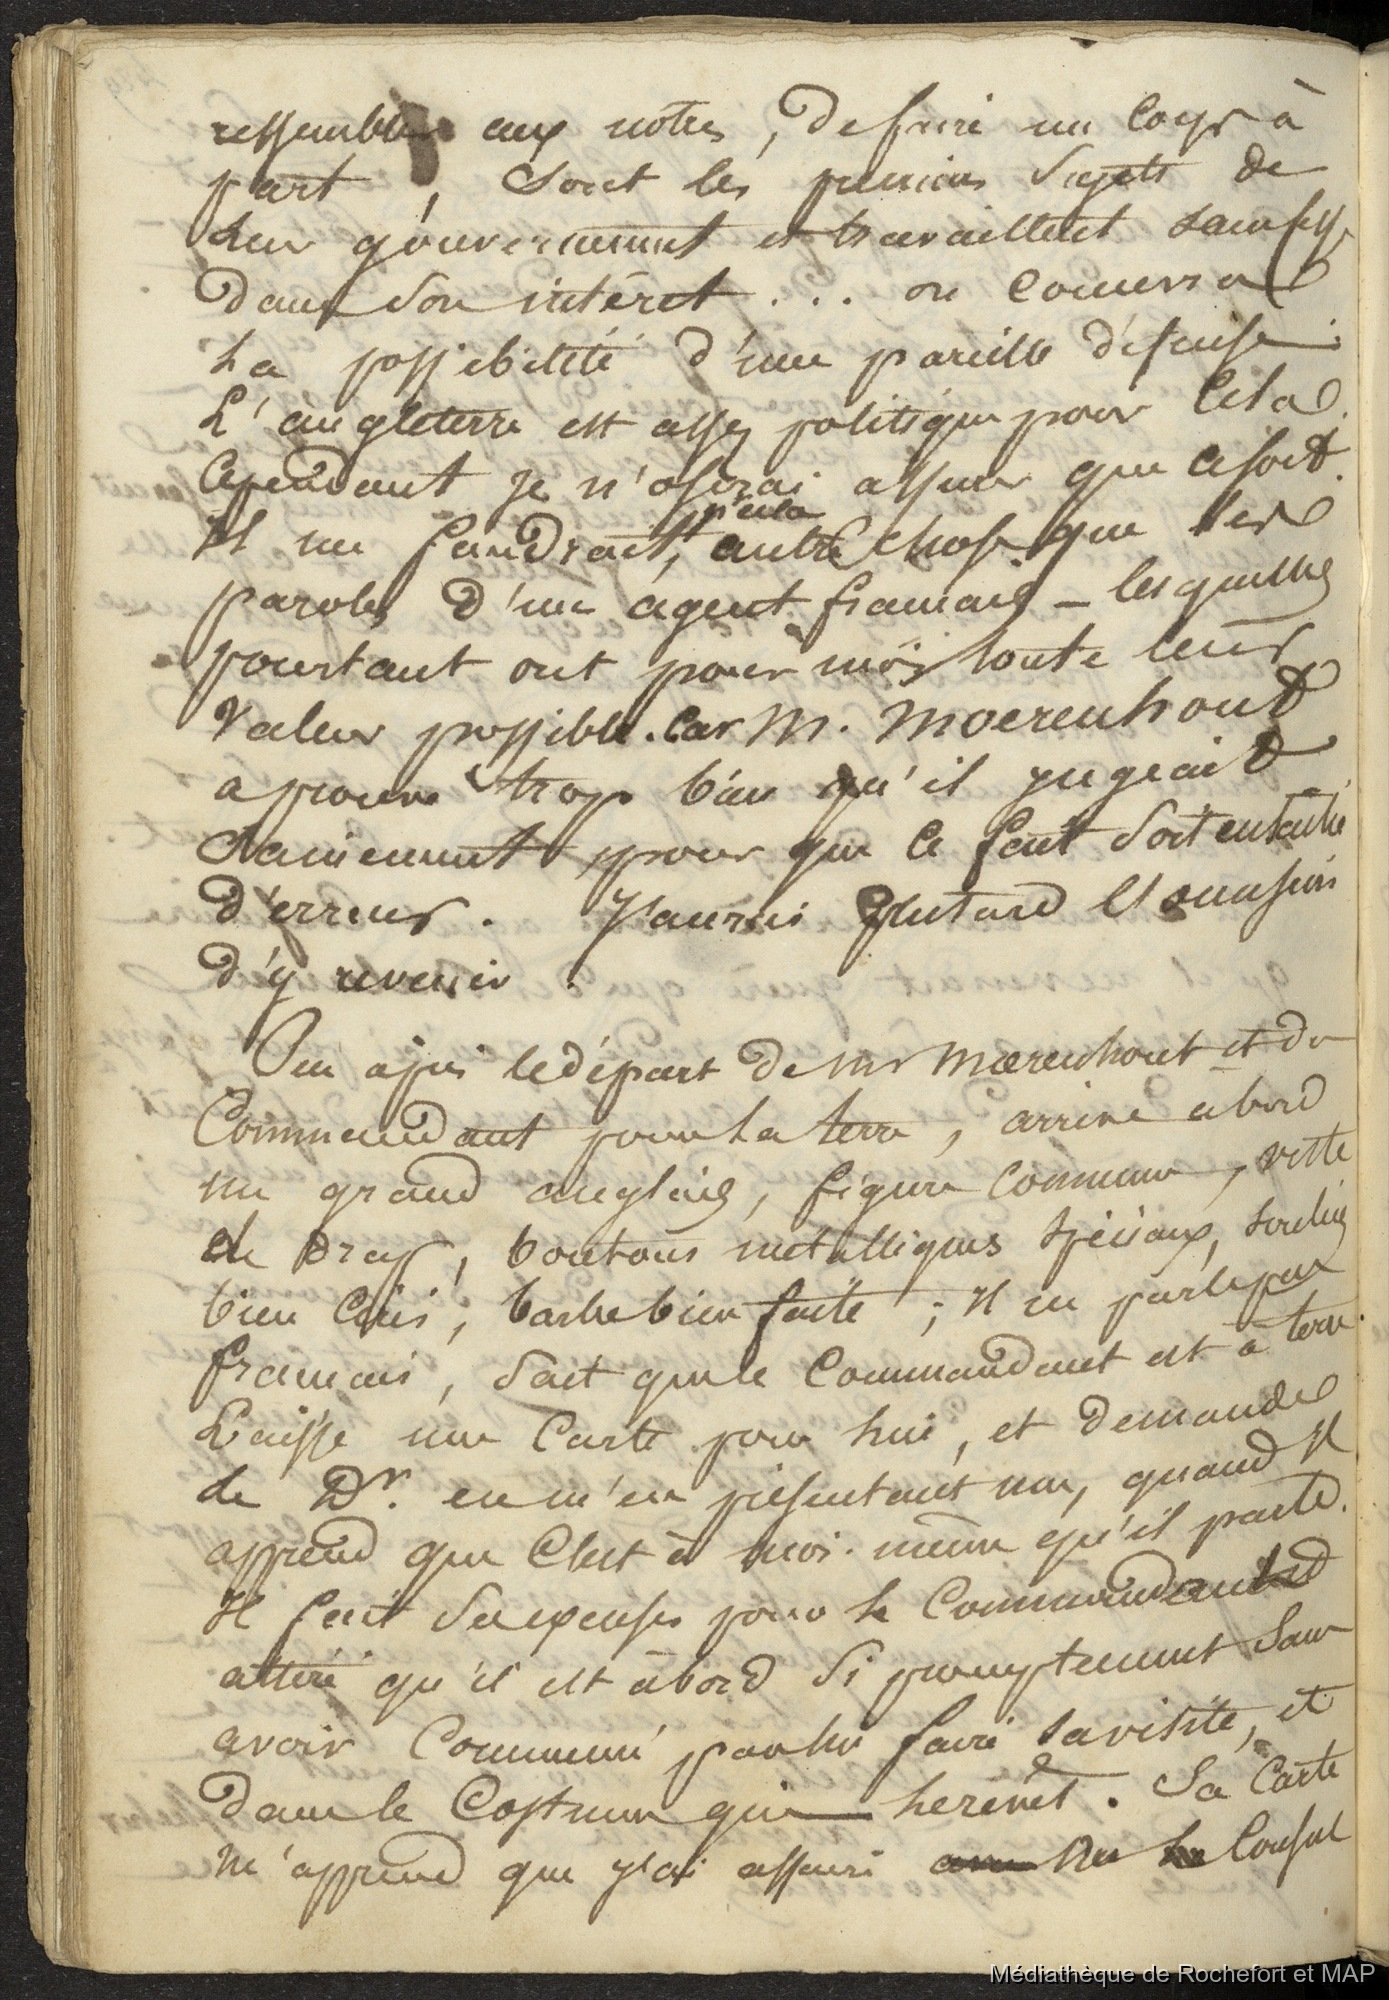 ressembler aux notres, de faire un corps à
part, sont les premiers sujets de
leur gouvernement et travaillent sans cesse
dans son intéret . . . on concevra
La possibilité d'une pareille défense.
L'angleterre est assez politique pour cela.
Cependant je n'oserai assurer que ce soit.
p'cela
Il me faudrait, autre chose que les
paroles d'un agent français _ lesquelles
pourtant ont pour moi toute leur
Valeur possible. Car M. Moerenhout
a prouvé trop bien qu'il jugeait
Sainement pour que ce fait soit entaché
d'erreur. J'aurai plutard l'occasion
d'y revenir.
Peu après le départ de Mr Mœrenhout et du
Commandant pour la terre, arrive abord
un grand anglais, figure commune, veste
de Drap, boutons métalliques spéciaux, souliers
bien cirés, barbe bien faite; Il ne parle pas
francais, sait que le Commandant est à terre.
Laisse une Carte pour lui, et demande
le Dr. en m'en présentant une, quand Il
apprend que C'est à moi-même qu'il parle.
Il fait ses excuses pour le Commandant
attéré qu'il est à bord si promptement sans
avoir Comment pour lui faire sa visite, et
dans le Costume qui le revêt. Sa Carte
m'apprend que j'ai affaire au Consul